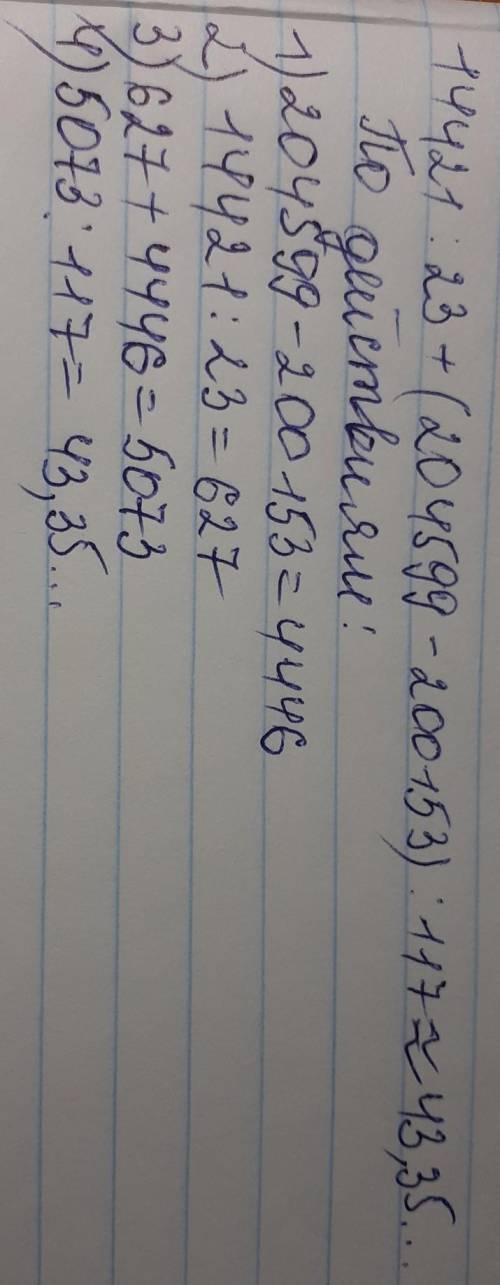 14421 : 23 + (204599 - 200153) : 117 ≈ 43,35...
По действиям:
1) 204599 - 200153 = 4446
2) 14421 : 23 = 627
3) 627 + 4446 = 5073
4) 5073 : 117 = 43,35...